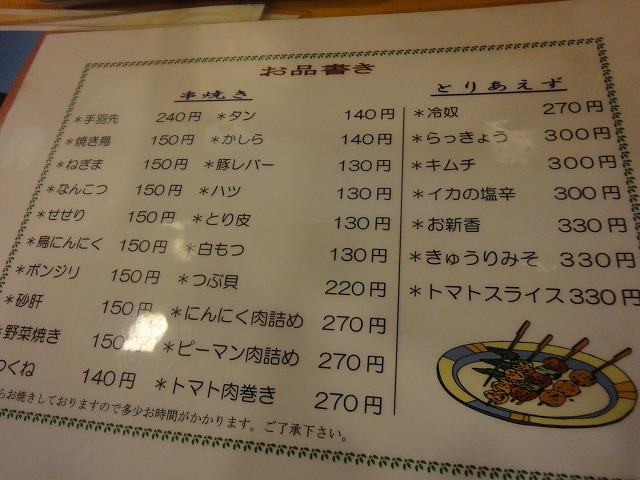 お品書き
串焼き
*手羽先 240円
*焼き鳥 150円
*ねぎま 150円
*なんこつ 150円
*せせり 150円
*鳥にんにく 150円
*ボンジリ 150円
*砂肝 150円
*野菜焼き 150円
つくね 140円
*タン 140円
*かしら 140円
*豚レバー 130円
*ハツ 130円
*とり皮 130円
*白もつ 130円
*つぶ貝 220円
*にんにく肉詰め 270円
*ピーマン肉詰め 270円
*トマト肉巻き 270円
らお焼きしておりますので多少お時間がかかります。ご了承下さい。
とりあえず
*冷奴 270円
*らっきょう 300円
*キムチ 300円
*イカの塩辛 300円
*お新香 330円
*きゅうりみそ 330円
*トマトスライス 330円